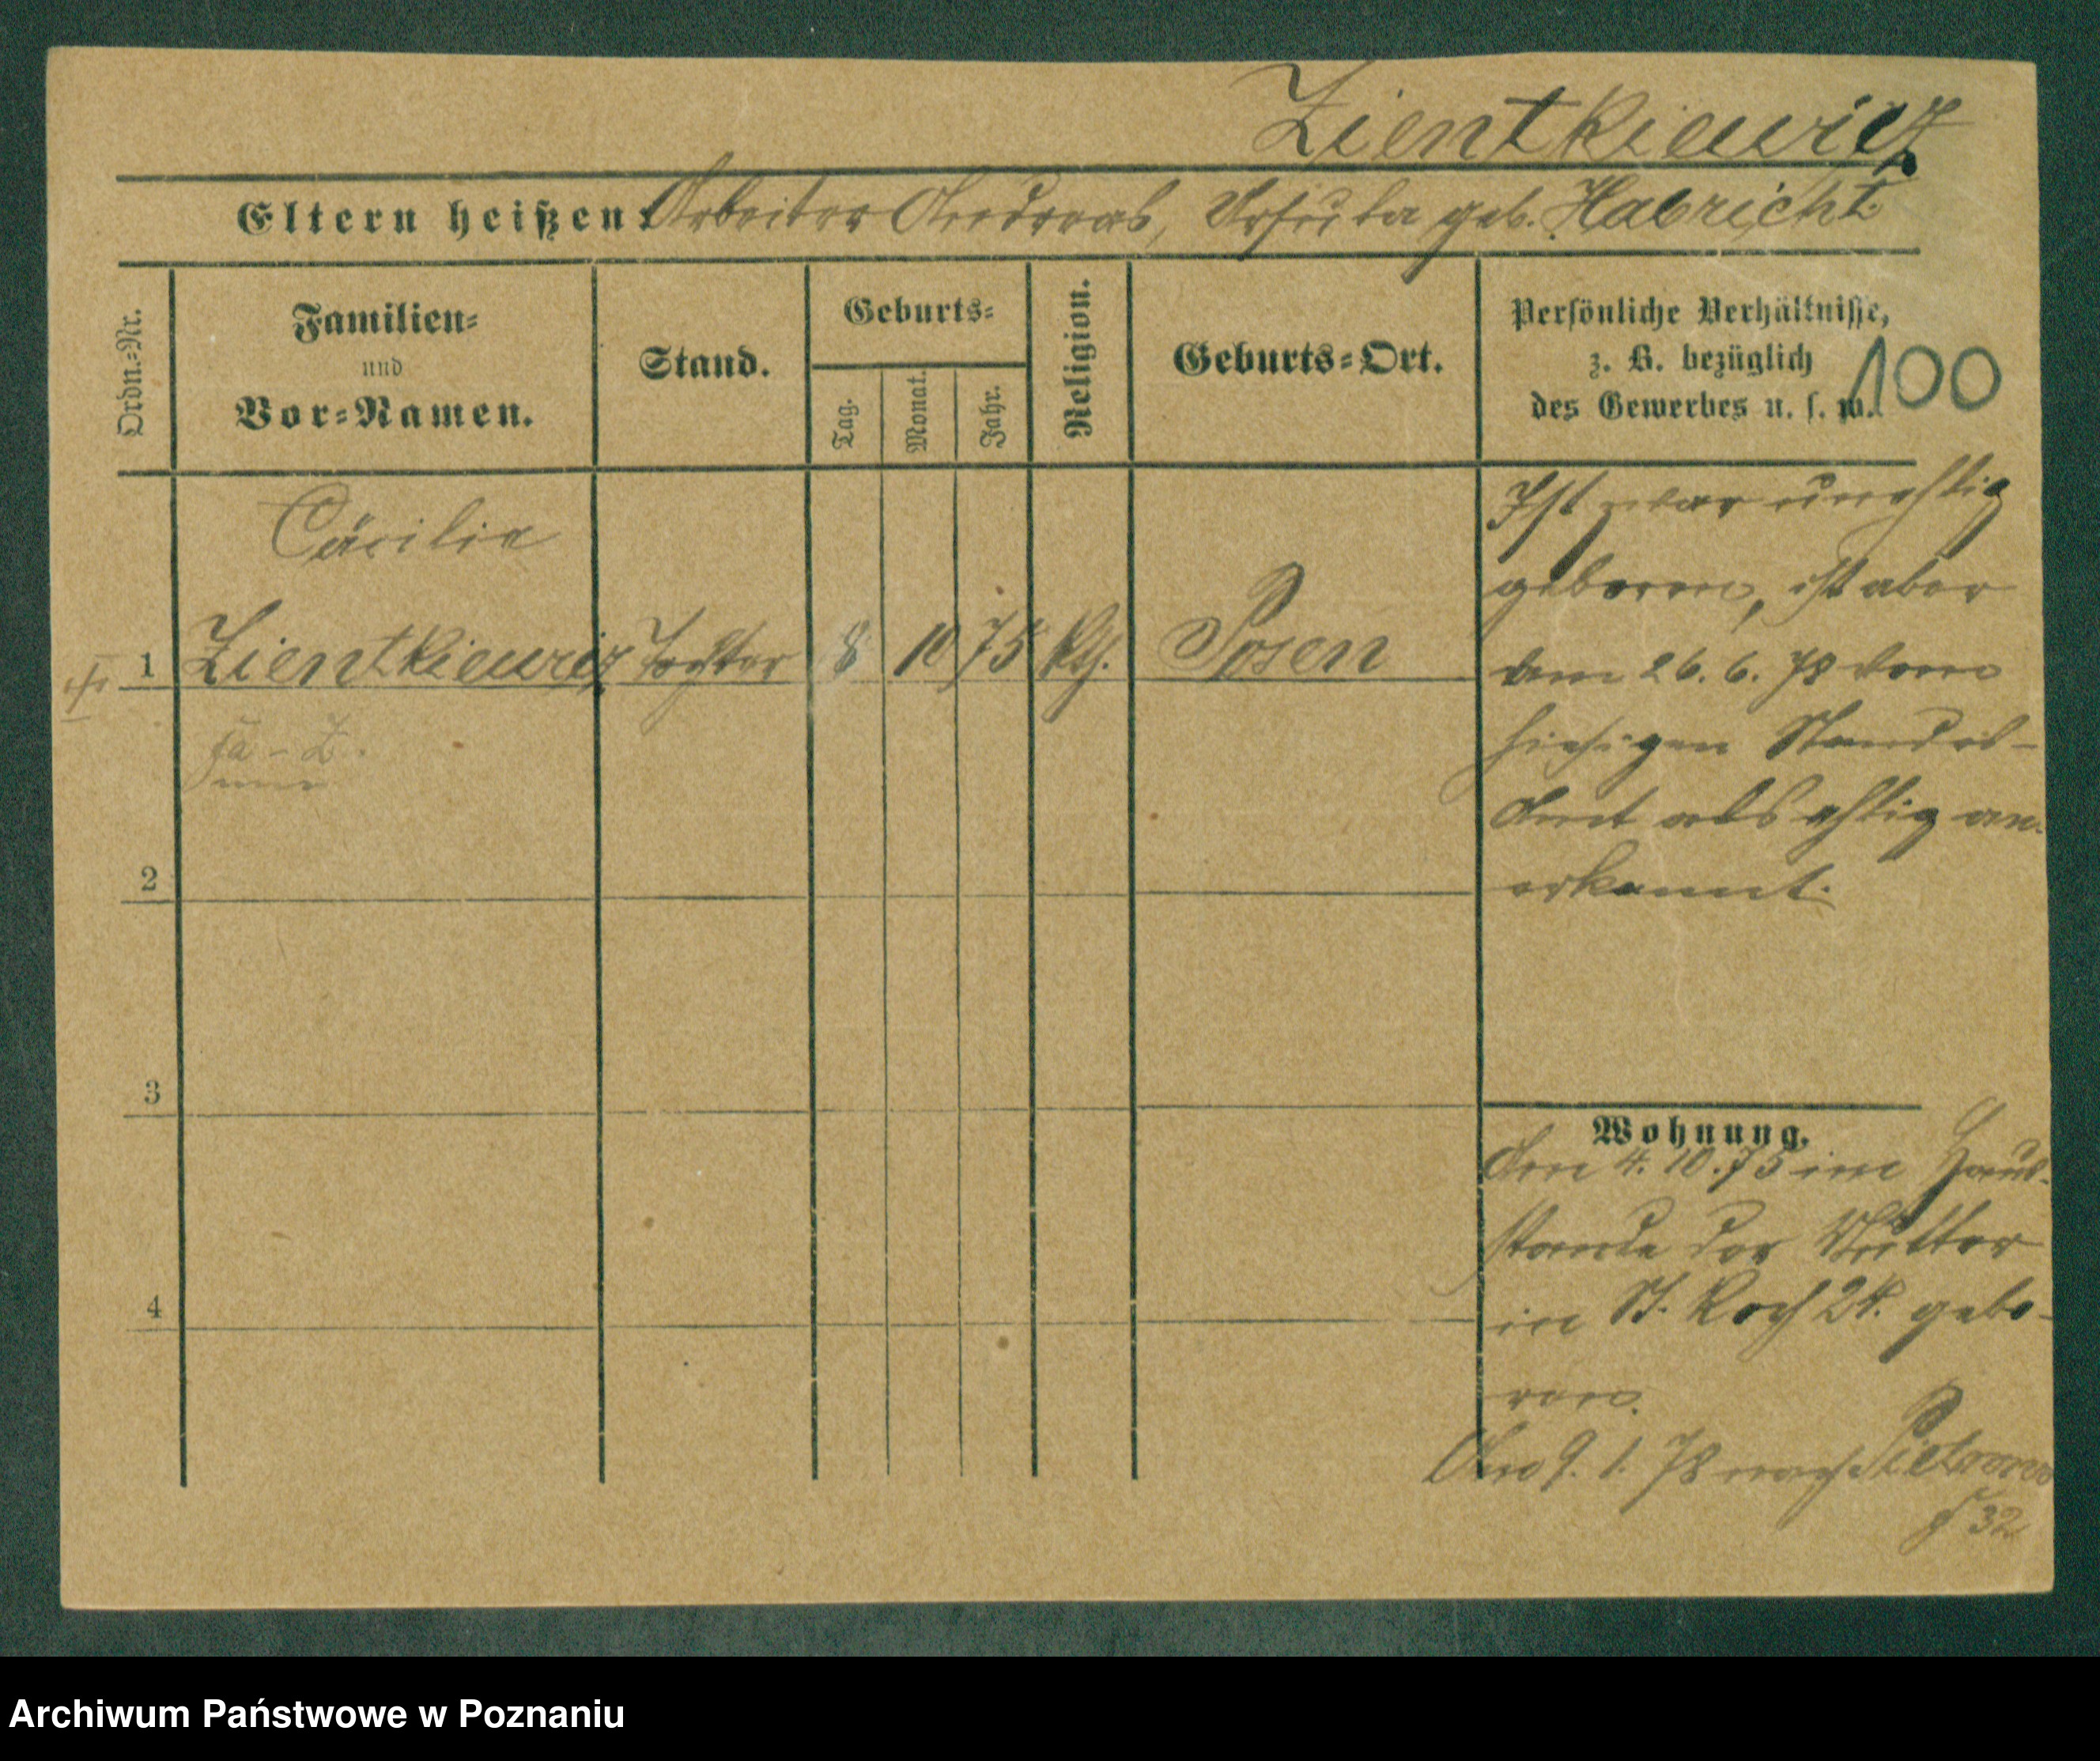 Zientkiewicz
Eltern heißen: Arbeiter Andreas, Ursula geb. Habricht
Ordn.=Nr.
Familien=
und
Vor=Namen.
Stand.
Geburts=
Tag.
Monat.
Jahr.
Religion.
Geburts=Ort.
Persönliche Verhältnisse,
z. B. bezüglich
des Gewerbes u. s. w.
100
Cäcilia
1 Zientkiewicz Tochter 8 10 75 kth. Posen
2
3
4
Ist zwar unehlig
geboren, ist aber
am 26. 6. 78 vom
hiesigen Standes-
Amt als ehlig an-
erkannt.
Wohnung.
Am 4. 10. 75 im Haus-
stande der Mutter
in St. Roch 24. gebo-
ren.
Am 9. 1. 78 nach
32
Archiwum Państwowe w Poznaniu